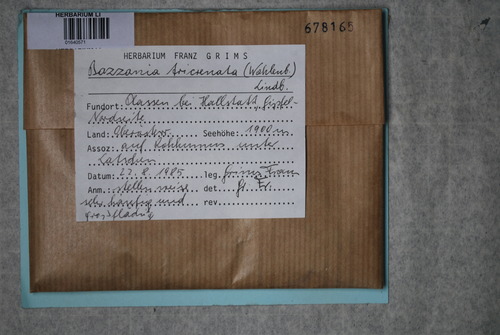 HERBARIUM LI
678165
HERBARIUM FRANZ GRIMS
Bazzania tricrenata (Wahlenb.)
Lindb.
Fundort: Plassen bei Hallstatt, Gipfel-
Nordseite
Land: Oberösterr. Seehöhe: 1900 m
Assoz: auf Kalkhumus unter
Latschen
Datum: 23.8.1985 leg. Grims Franz
Anm. stellenweise det. Gr. Fr.
sehr häufig und rev.
großflächig